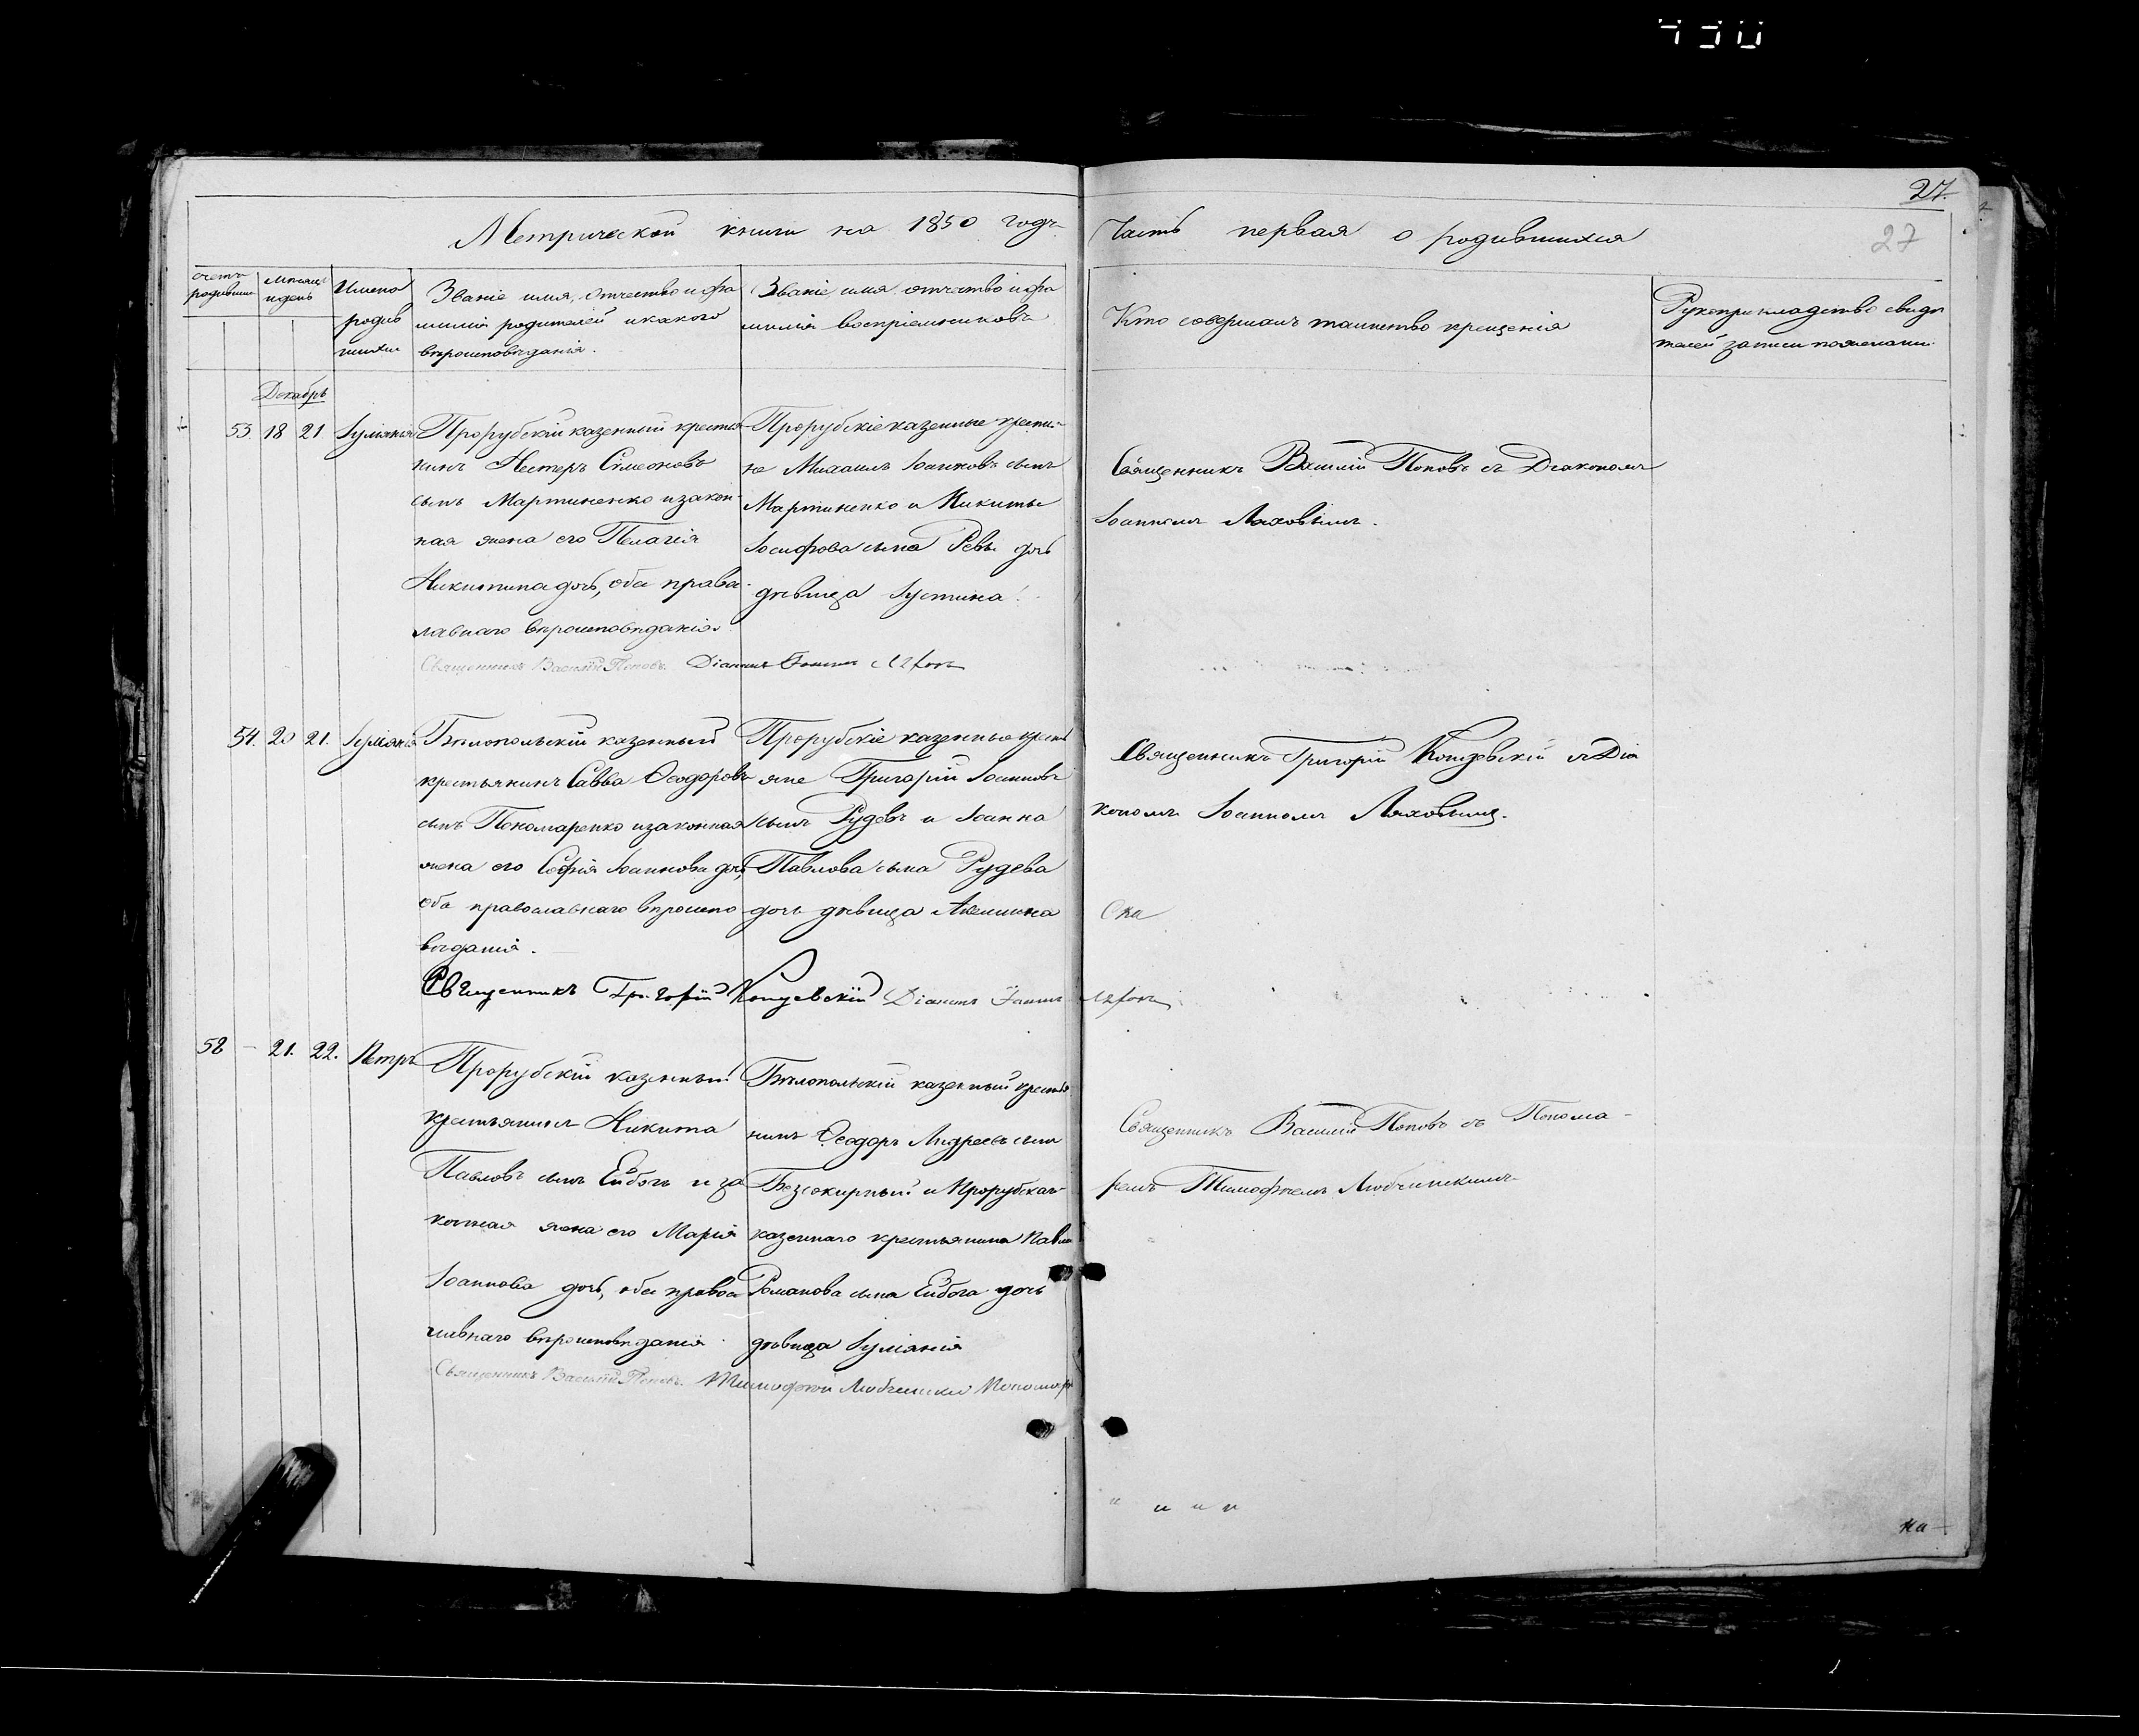 430
27.
27
Метрической книги на 1850 годъ
Часть первая о родившихся
счетъ родившихся
мѣсяцъ и день
Имена родившихся
Званіе имя, отчество и фамилія родителей и какого вѣроисповѣданія.
Званіе имя отчество и фамилія воспріемниковъ
Кто совершалъ таинство крещенія
Рукоприкладство свидѣтелей записи по желанію
Декабрь
53. 18 21. Іуліанія
Прорубскій казенный крестья
нинъ Нестеръ Симеоновъ
сынъ Мартиненко и закон
ная жена его Пелагія
Никитина дочь, оба право
славнаго вѣроисповѣданія.
Прорубскіе казенные крестья
не Михаилъ Іоанновъ сынъ
Мартиненко и Никиты
Іосифова сына Ревы дочь
дѣвица Іустина.
Священникъ Василій Поповъ съ Діакономъ
Іоанномъ Ляховымъ.
Священникъ Василій Поповъ. Діаконъ Іоаннъ Ляховъ
54. 20 21. Іуліанія
Бѣлопольскій казенный
крестьянинъ Савва Ѳеодоровъ
сынъ Пономаренко и законная
жена его Софія Іоаннова дочь,
оба православнаго вѣроиспо
вѣданія.
Прорубскіе казенные кресть
яне Григорій Іоанновъ
сынъ Рудевъ и Іоанна
Павлова сына Рудева
дочь дѣвица Акилина
Священникъ Григорій Концевскій съ Діа
кономъ Іоанномъ Ляховымъ.
Священникъ Григорій Концевскій Діаконъ Іоаннъ Ляховъ
58 – 21. 22. Петръ
Прорубскій казенный
крестьянинъ Никита
Павловъ сынъ Ейбогъ и за
конная жена его Марія
Іоаннова дочь, оба право
славнаго вѣроисповѣданія.
Бѣлопольскій казенный крестья
нинъ Ѳеодоръ Андреевъ сынъ
Безсокирный и Прорубскаго
казеннаго крестьянина Павла
Романова сына Ейбога дочь
дѣвица Іуліанія
Священникъ Василій Поповъ съ Понома-
ремъ Тимофеемъ Любчинскимъ
Священникъ Василій Поповъ. Тимофей Любчинскій Пономарь
на